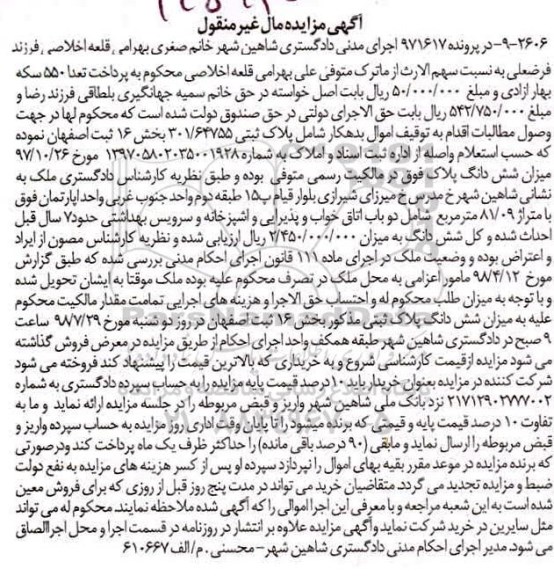 آگهی مزایده مال غیر منقول
۲۶۰۶-۹- در پرونده ۹۷۱۶۱۷ اجرای مدنی دادگستری شاهین شهر خانم صغری بهرامی قلعه اخلاصی فرزند
فرضعلی به نسبت سهم الارث از ماترک متوفی علی بهرامی قلعه اخلاصی محکوم به پرداخت تعدا ۵۵۰ سکه
بهار ازادی و مبلغ ۵۰/۰۰۰/۰۰۰ ریال بابت اصل خواسته در حق خانم سمیه جهانگیری بلطاقی فرزند رضا و
مبلغ ۵۴۲/۷۵۰/۰۰۰ ریال بابت حق الاجرای دولتی در حق صندوق دولت شده است که محکوم لها در جهت
وصول مطالبات اقدام به توقیف اموال بدهکار شامل پلاک ثبتی ۳۰۱/۶۴۷۵۵ بخش ۱۶ ثبت اصفهان نموده
که حسب استعلام واصله از اداره ثبت اسناد و املاک به شماره ۱۳۹۷۰۵۸۰۲۰۳۵۰۰۱۹۲۸ مورخ ۹۷/۱۰/۲۶
میزان شش دانگ پلاک فوق در مالکیت رسمی متوفی بوده و طبق نظریه کارشناس دادگستری ملک به
نشانی شاهین شهر خ مدرس خ میرزای شیرازی بلوار قیام پ۱۵ طبقه دوم واحد جنوب غربی واحد اپارتمان فوق
با متراژ ۸۱/۰۹ مترمربع شامل دو باب اتاق خواب و پذیرایی و اشپزخانه و سرویس بهداشتی حدود۷ سال قبل
احداث شده و کل شش دانگ به میزان ۲/۴۵۰/۰۰۰/۰۰۰ ریال ارزیابی شده و نظریه کارشناس مصون از ایراد
و اعتراض بوده و وضعیت ملک در اجرای ماده ۱۱۱ قانون اجرای احکام مدنی بررسی شده که طبق گزارش
مورخ ۹۸/۴/۱۲ مامور اعزامی به محل ملک در تصرف محکوم علیه بوده ملک موقتا به ایشان تحویل شده
و با توجه به میزان طلب محکوم له و احتساب حق الاجرا و هزینه های اجرایی تمامت مقدار مالکیت محکوم
علیه به میزان شش دانگ پلاک ثبتی مذکور بخش ۱۶ ثبت اصفهان در روز دو شنبه مورخ ۹۸/۷/۲۹ ساعت
۹ صبح در دادگستری شاهین شهر طبقه همکف واحد اجرای احکام از طریق مزایده در معرض فروش گذاشته
می شود مزایده از قیمت کارشناسی شروع و به خریداری که بالاترین قیمت را پیشنهاد کند فروخته می شود
شرکت کننده در مزایده بعنوان خریدار باید ۱۰ درصد قیمت پایه مزایده را به حساب سپرده دادگستری به شماره
۲۱۷۱۲۹۰۲۷۷۰۰۲ نزد بانک ملی شاهین شهر واریز و قبض مربوطه را در جلسه مزایده ارائه نماید و ما به
تفاوت ۱۰ درصد قیمت پایه و قیمتی که برنده میشود را تا پایان وقت اداری روز مزایده به حساب سپرده واریز و
قبض مربوطه را ارسال نماید و مابقی (۹۰ درصد باقی مانده) را حداکثر ظرف یک ماه پرداخت کند ودرصورتی
که برنده مزایده در موعد مقرر بقیه بهای اموال را نپردازد سپرده او پس از کسر هزینه های مزایده به نفع دولت
ضبط و مزایده تجدید می گردد. متقاضیان خرید می تواند در مدت پنج روز قبل از روزی که برای فروش معین
شده است به این شعبه مراجعه و با معرفی این اجرا اموالی را که آگهی شده ملاحظه نمایند محکوم له می تواند
مثل سایرین در خرید شرکت نماید وآگهی مزایده علاوه بر انتشار در روزنامه در قسمت اجرا و محل اجرا الصاق
می شود. مدیر اجرای احکام مدنی دادگستری شاهین شهر- محسنی . م/الف ۶۱۰۶۶۷